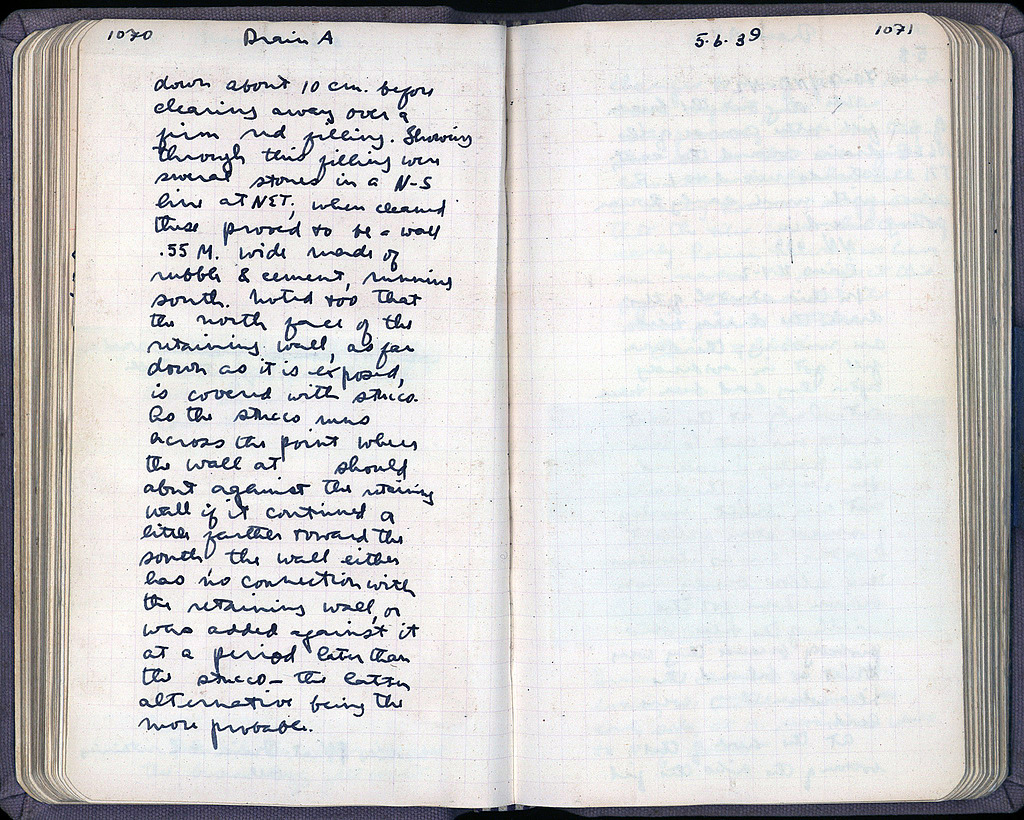 1070 Drain A
down about 10 cm. before
clearing away over a
firm red filling. Showing
through this filling were
several stones in a N-S
line at NET; when cleaned
these proved to be a wall
.55 M. wide made of
rubble & cement, running
south. Noted too that
the north face of the
retaining wall, as far
down as it is exposed,
is covered with stucco.
As the stucco runs
across the point where
the wall at should
abut against the retaining
wall if it continued a
little farther toward the
south the wall either
has no connection with
the retaining wall, or
was added against it
at a period later than
the stucco – the latter
alternative being the
more probable.
5.6.39 1071